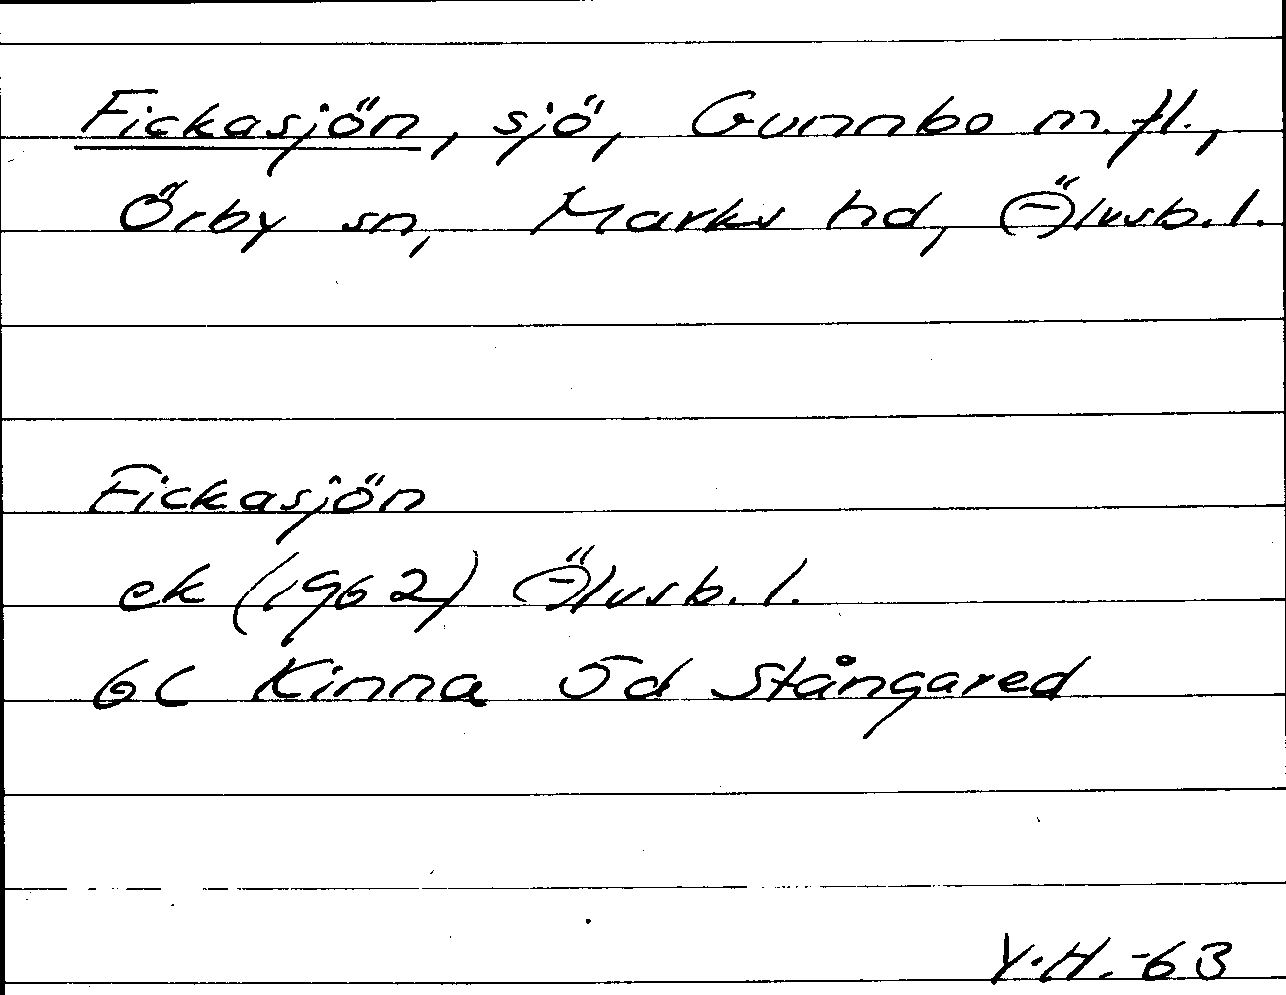 Fickasjön, sjö, Gunnbo m.fl.,
Örby sn, Marks hd, Älvsb.l.
Fickasjön
ek (1962) Älvsb.l.
6C Kinna 5d Stångared
Y.H.-63